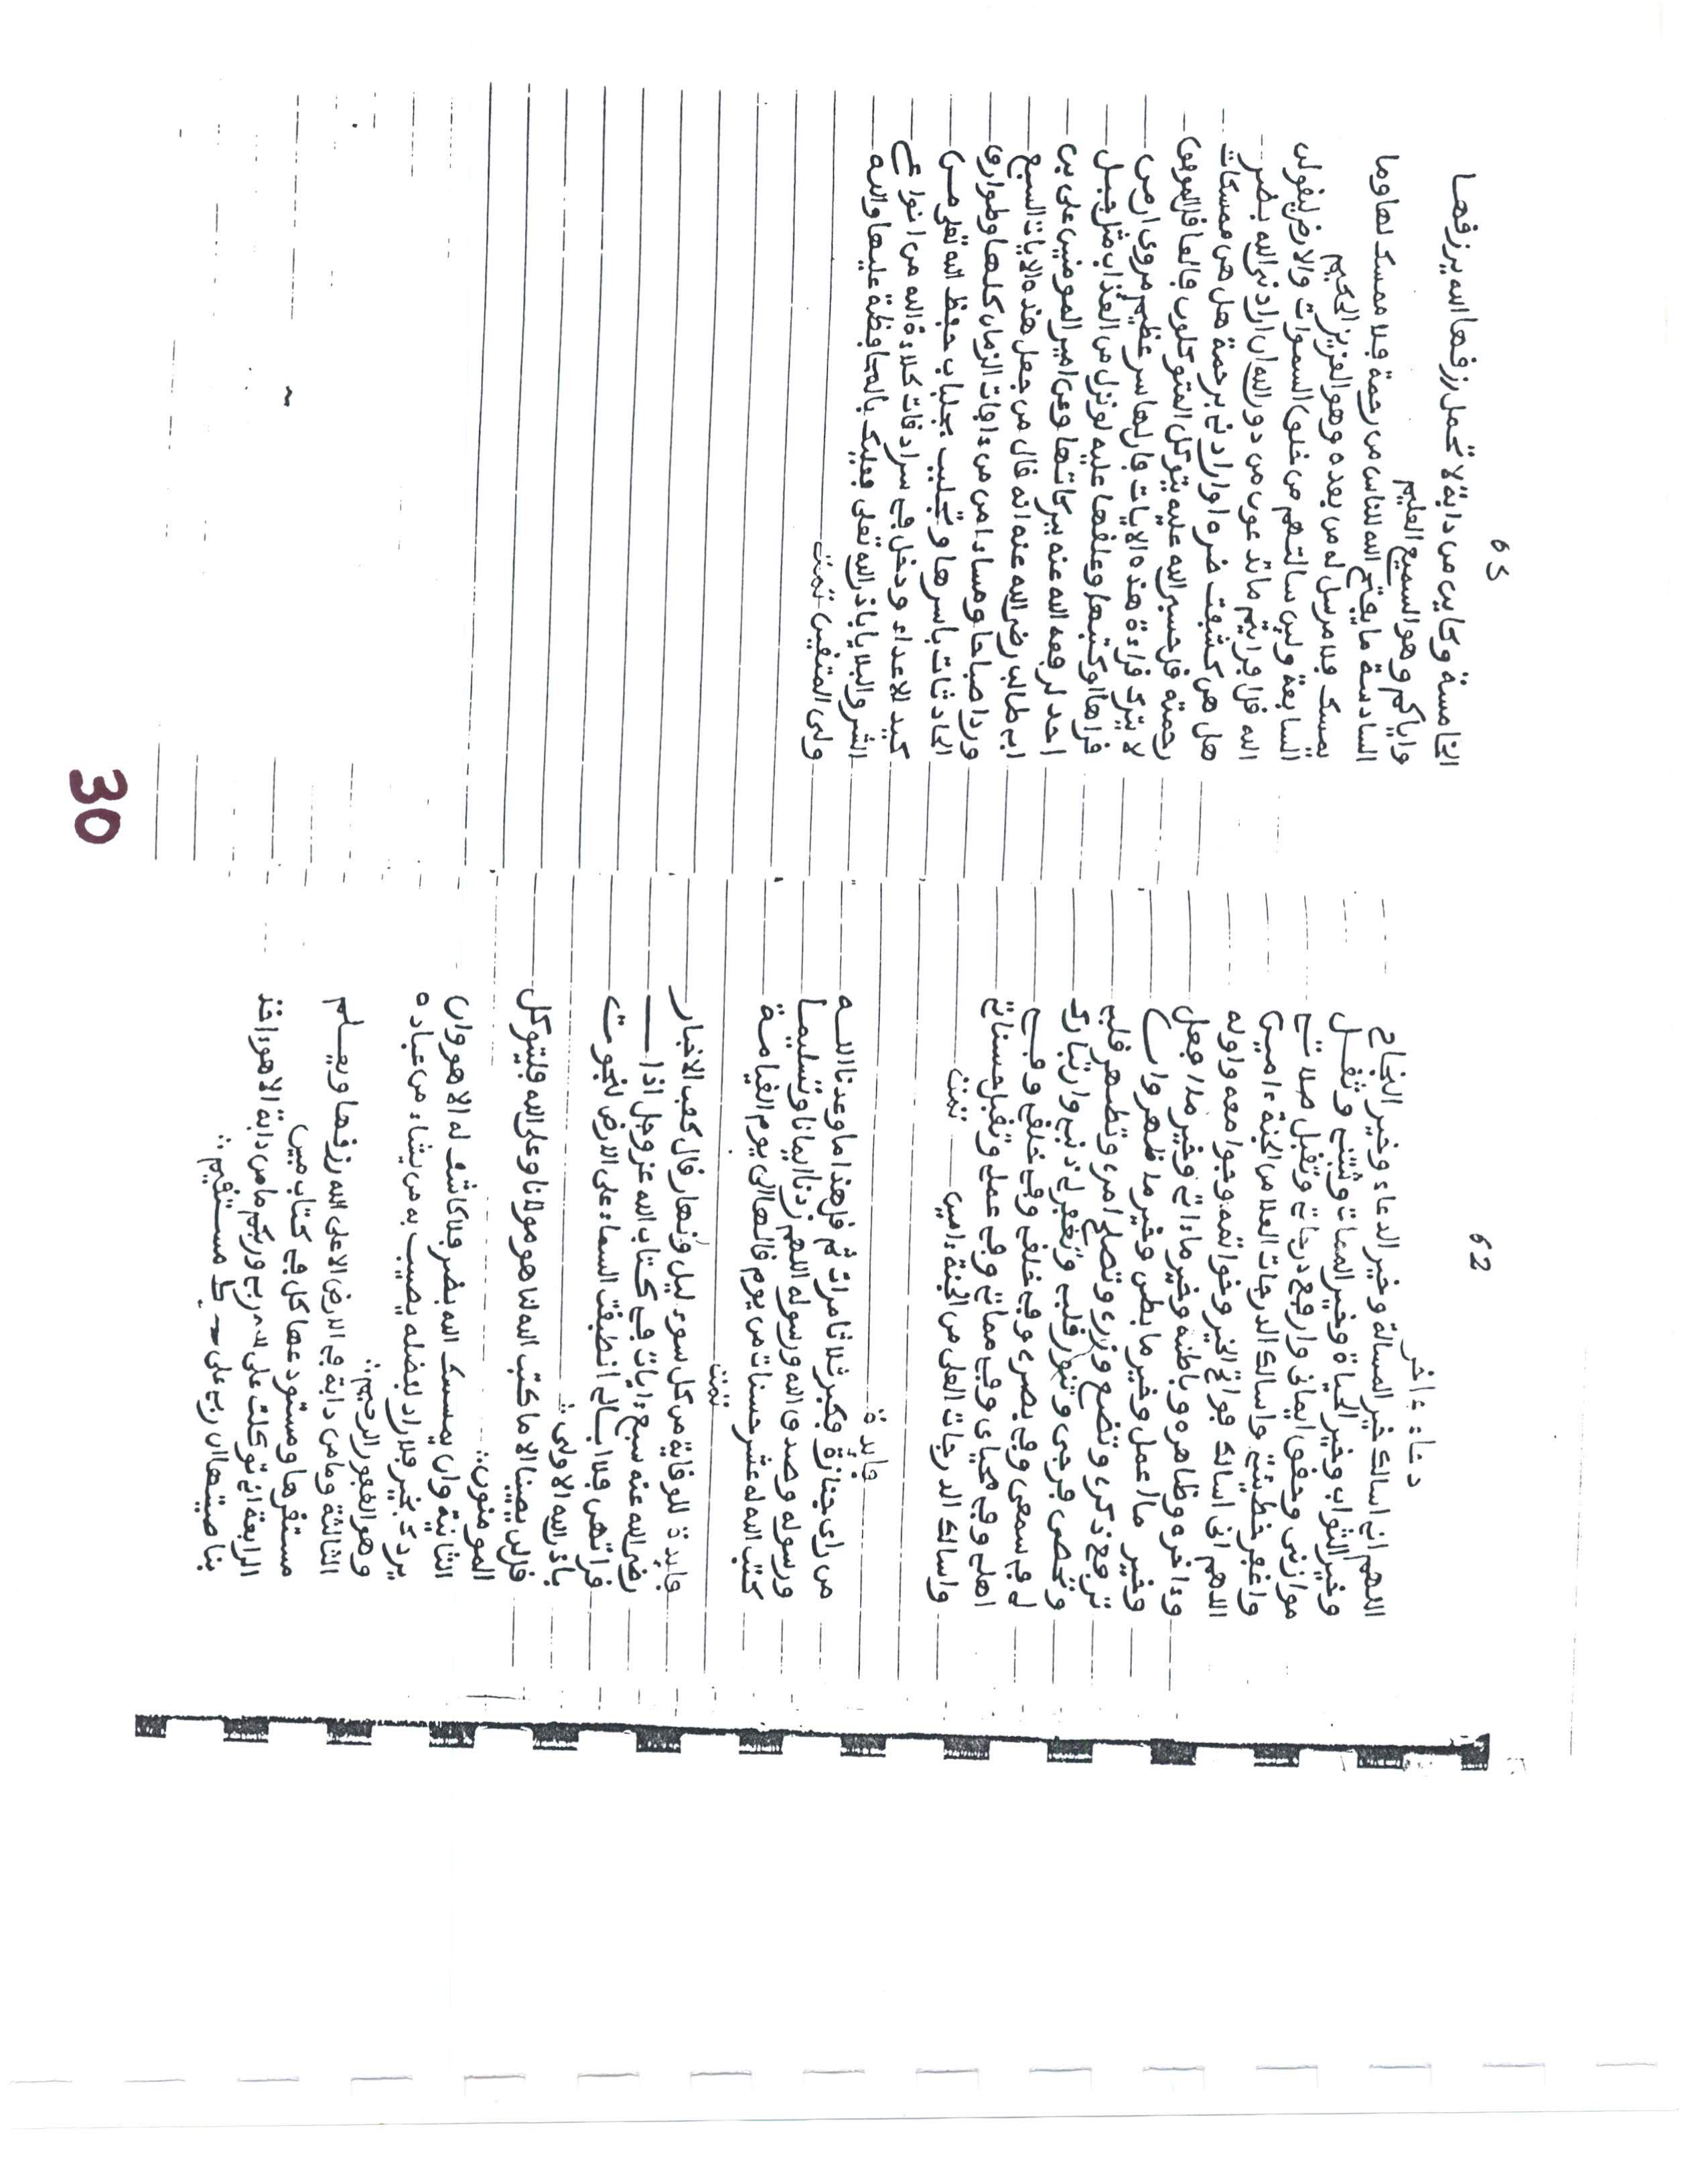 62
دعاء ءاخر
اللهم انى اسالك خير المسالة وخير الدعاء وخير النجاح
وخير الثواب وخير الحياة وخير الممات وثبتنى وثقل
موازنى وحقق ايمانى وارفع درجاتى وتقبل صلاتى
واغفر خطيئتى واسالك الدرجات العلا من الجنة ءامين
اللهم انى اسالك فواتح الخير وخواتمه وجوامعه واوله
وءاخره وظاهره وباطنه وخير ماءاتى وخير ما افعل
وخير ما اعمل وخير ما بطن وخير ما ظهر وان
ترفع ذكرى وتضع وزرى وتصلح امرى وتطهر قلبى
وتحصن فرجى وتنور قلبى وتغفر لى ذنبى وان تبارك
لى فى سمعى وفى بصرى وفى خلقى وفى خلقى وفى
اهلى وفى محياى وفى مماتى وفى عملى وتقبل حسناتى
واسالك الدرجات العلى من الجنة ءامين تمت
فايدة
من راى جنازة فكبر ثلاثا مرات ثم قل هذا ما وعدنا اللـه
ورسوله وصدق الله ورسوله اللهم زدنا ايمانا وتسليما
كتب الله له عشر حسنات من يوم قالها الى يوم القيامة
تمت
فايدة للوقاية من كل سوء ليل ونهار قال كعب الاخبار
رضى الله عنه سبع ءايات فى كتاب الله عز وجل اذا
قراتهن فلا ابالى انطبقت السماء على الارض لنجوت
باذن الله الاولى
قل لن يصيبنا الا ما كتب الله لنا هو مولانا وعلى الله فليتوكل
المومنون
الثانية وان يمسسك الله بضر فلا كاشف له الا هو وان
يردك بخير فلا راد لفضله يصيب به من يشاء من عباده
وهو الغفور الرحيم
الثالثة وما من دابة فى الارض الا على الله رزقها ويعـلم
مستقرها ومستودعها كل فى كتاب مبين
الرابعة انى توكلت على الله ربى وربكم ما من دابة الا هو ءاخذ
بناصيتها ان ربى على صراط مستقيم
65
الخامسة وكاين من دابة لا تحمل رزقها الله يرزقها
واياكم وهو السميع العليم
السادسة ما يفتح الله للناس من رحمة فلا ممسك لها وما
يمسك فلا مرسل له من بعده وهو العزيز الحكيم
السابعة ولين سالتهم من خلق السموات والارض ليقولن
الله قل افرايتم ما تدعون من دون الله ان ارادنى الله بضر
هل هن كشفت ضره او ارادنى برحمة هل هن ممسكات
رحمته قل حسبى الله عليه يتوكل المتوكلون
لا يترك قراءة هذه الايات فان لها سر عظيم مروى ان من
قراها او كتبها وعلقها عليه لو نزل من العذاب مثل جبل
احد لرفعه الله عنه ببركاتها وعن امير المومنين على بن
ابى طالب رضى الله عنه انه قال من جعل هذه الايات السبع
وردا صباحا ومساء امن من ءافات الزمان كلها وطوارق
الحادثات باسرها وتجلبب بجلباب حفظ الله تعلى مـن
كيد الاعداء ودخل فى سرادقات كلاءة الله من انواع
الشر والبلايا باذن الله تعلى فعليك بالمحافظة عليها والله
ولى المتقين تمت
30